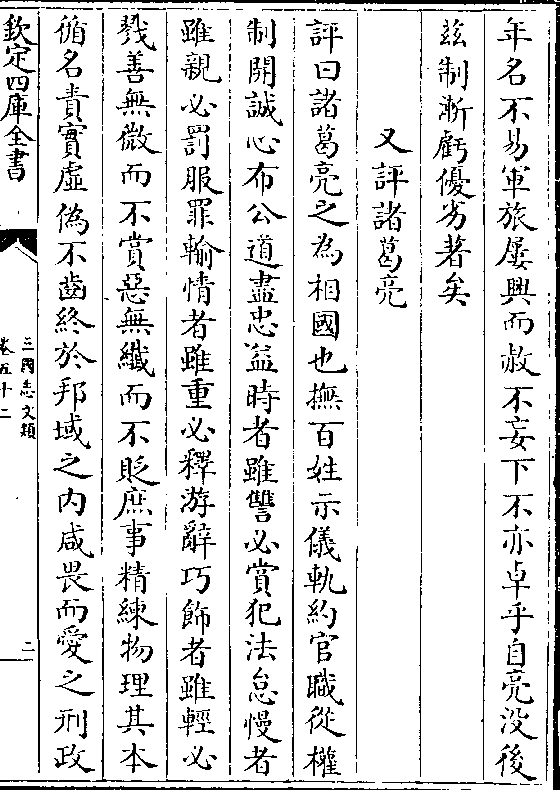 年名不易軍旅屢興而赦不妄下不亦卓乎自亮没後
兹制漸虧優劣著矣
又評諸葛亮
評曰諸葛亮之為相國也撫百姓示儀軌約官職從權
制開誠心布公道盡忠益時者雖讐必賞犯法怠慢者
雖親必罰服罪輸情者雖重必釋游辭巧飾者雖輕必
戮善無微而不賞惡無纖而不貶庶事精練物理其本
循名責實虛偽不齒終於邦域之内咸畏而愛之刑政
欽定四庫全書
三國志文類
卷五十二
二